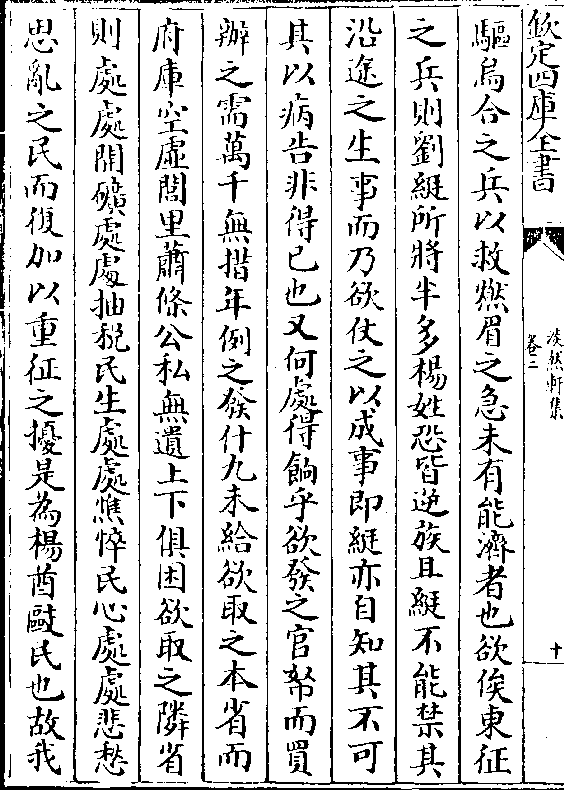 欽定四庫全書
淡然軒集
卷三
十
驅烏合之兵以救燃眉之急未有能濟者也欲俟東征
之兵則劉綎所將半多楊姓恐皆逆族且綎不能禁其
沿途之生事而乃欲仗之以成事即綎亦自知其不可
其以病告非得已也又何處得餉乎欲發之官帑而買
辦之需萬千無措年例之發什九未給欲取之本省而
府庫空虛閭里蕭條公私無遺上下俱困欲取之隣省
則處處開礦處處抽稅民生處處憔悴民心處處悲愁
思亂之民而復加以重征之擾是為楊酋敺民也故我